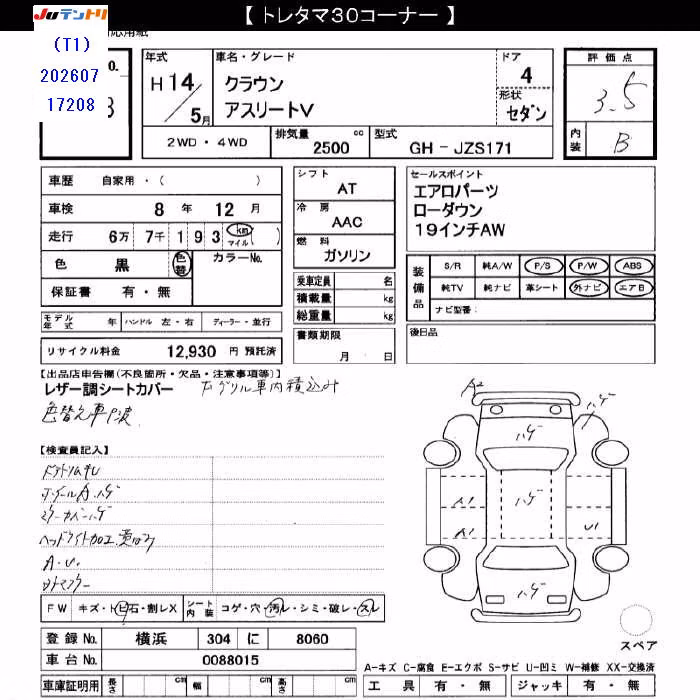 【 トレタマ30コーナー 】
JUテントリ
(T1)
202607
17208
年式
H 14 / 5月
車名・グレード
クラウン
アスリートV
ドア
4
形状
セダン
評価点
3.5
内装
B
2WD ・ 4WD
排気量 cc
2500
型式
GH - JZS171
車歴 自家用・( )
車検 8 年 12 月
走行 6万 7千 1 9 3 km マイル ( )
色 黒 色替
カラーNo.
保証書 有・無
シフト
AT
冷房
AAC
燃料
ガソリン
乗車定員 名
積載量 kg
総重量 kg
セールスポイント
エアロパーツ
ローダウン
19インチAW
装備品
S/R 純A/W P/S P/W ABS
純TV 純ナビ 革シート 外ナビ エアB
ナビ型番:
モデル年式 年 ハンドル 左・右 ディーラー・並行
書類期限
月 日
後日品
リサイクル料金 12,930 円 預託済
【出品店申告欄(不良箇所・欠品・注意事項等)】
レザー調シートカバー
グリル車内積込み
色替え車
【検査員記入】
ホイールA.ハゲ
ミラーカバーハゲ
ヘッドライト加工
A.U.
A2
ハゲ
ハゲ
ハゲ
ハゲ
A1
A1
U1
FW キズ・トビ石・割レX シート内装 コゲ・穴・汚レ・シミ・破レ・スレ
登録No. 横浜 304 に 8060
車台No. 0088015
車庫証明用 長さ cm 幅 cm 高さ cm
スペア
A-キズ C-腐食 E-エクボ S-サビ U-凹ミ W-補修 XX-交換済
工具 有・無 ジャッキ 有・無